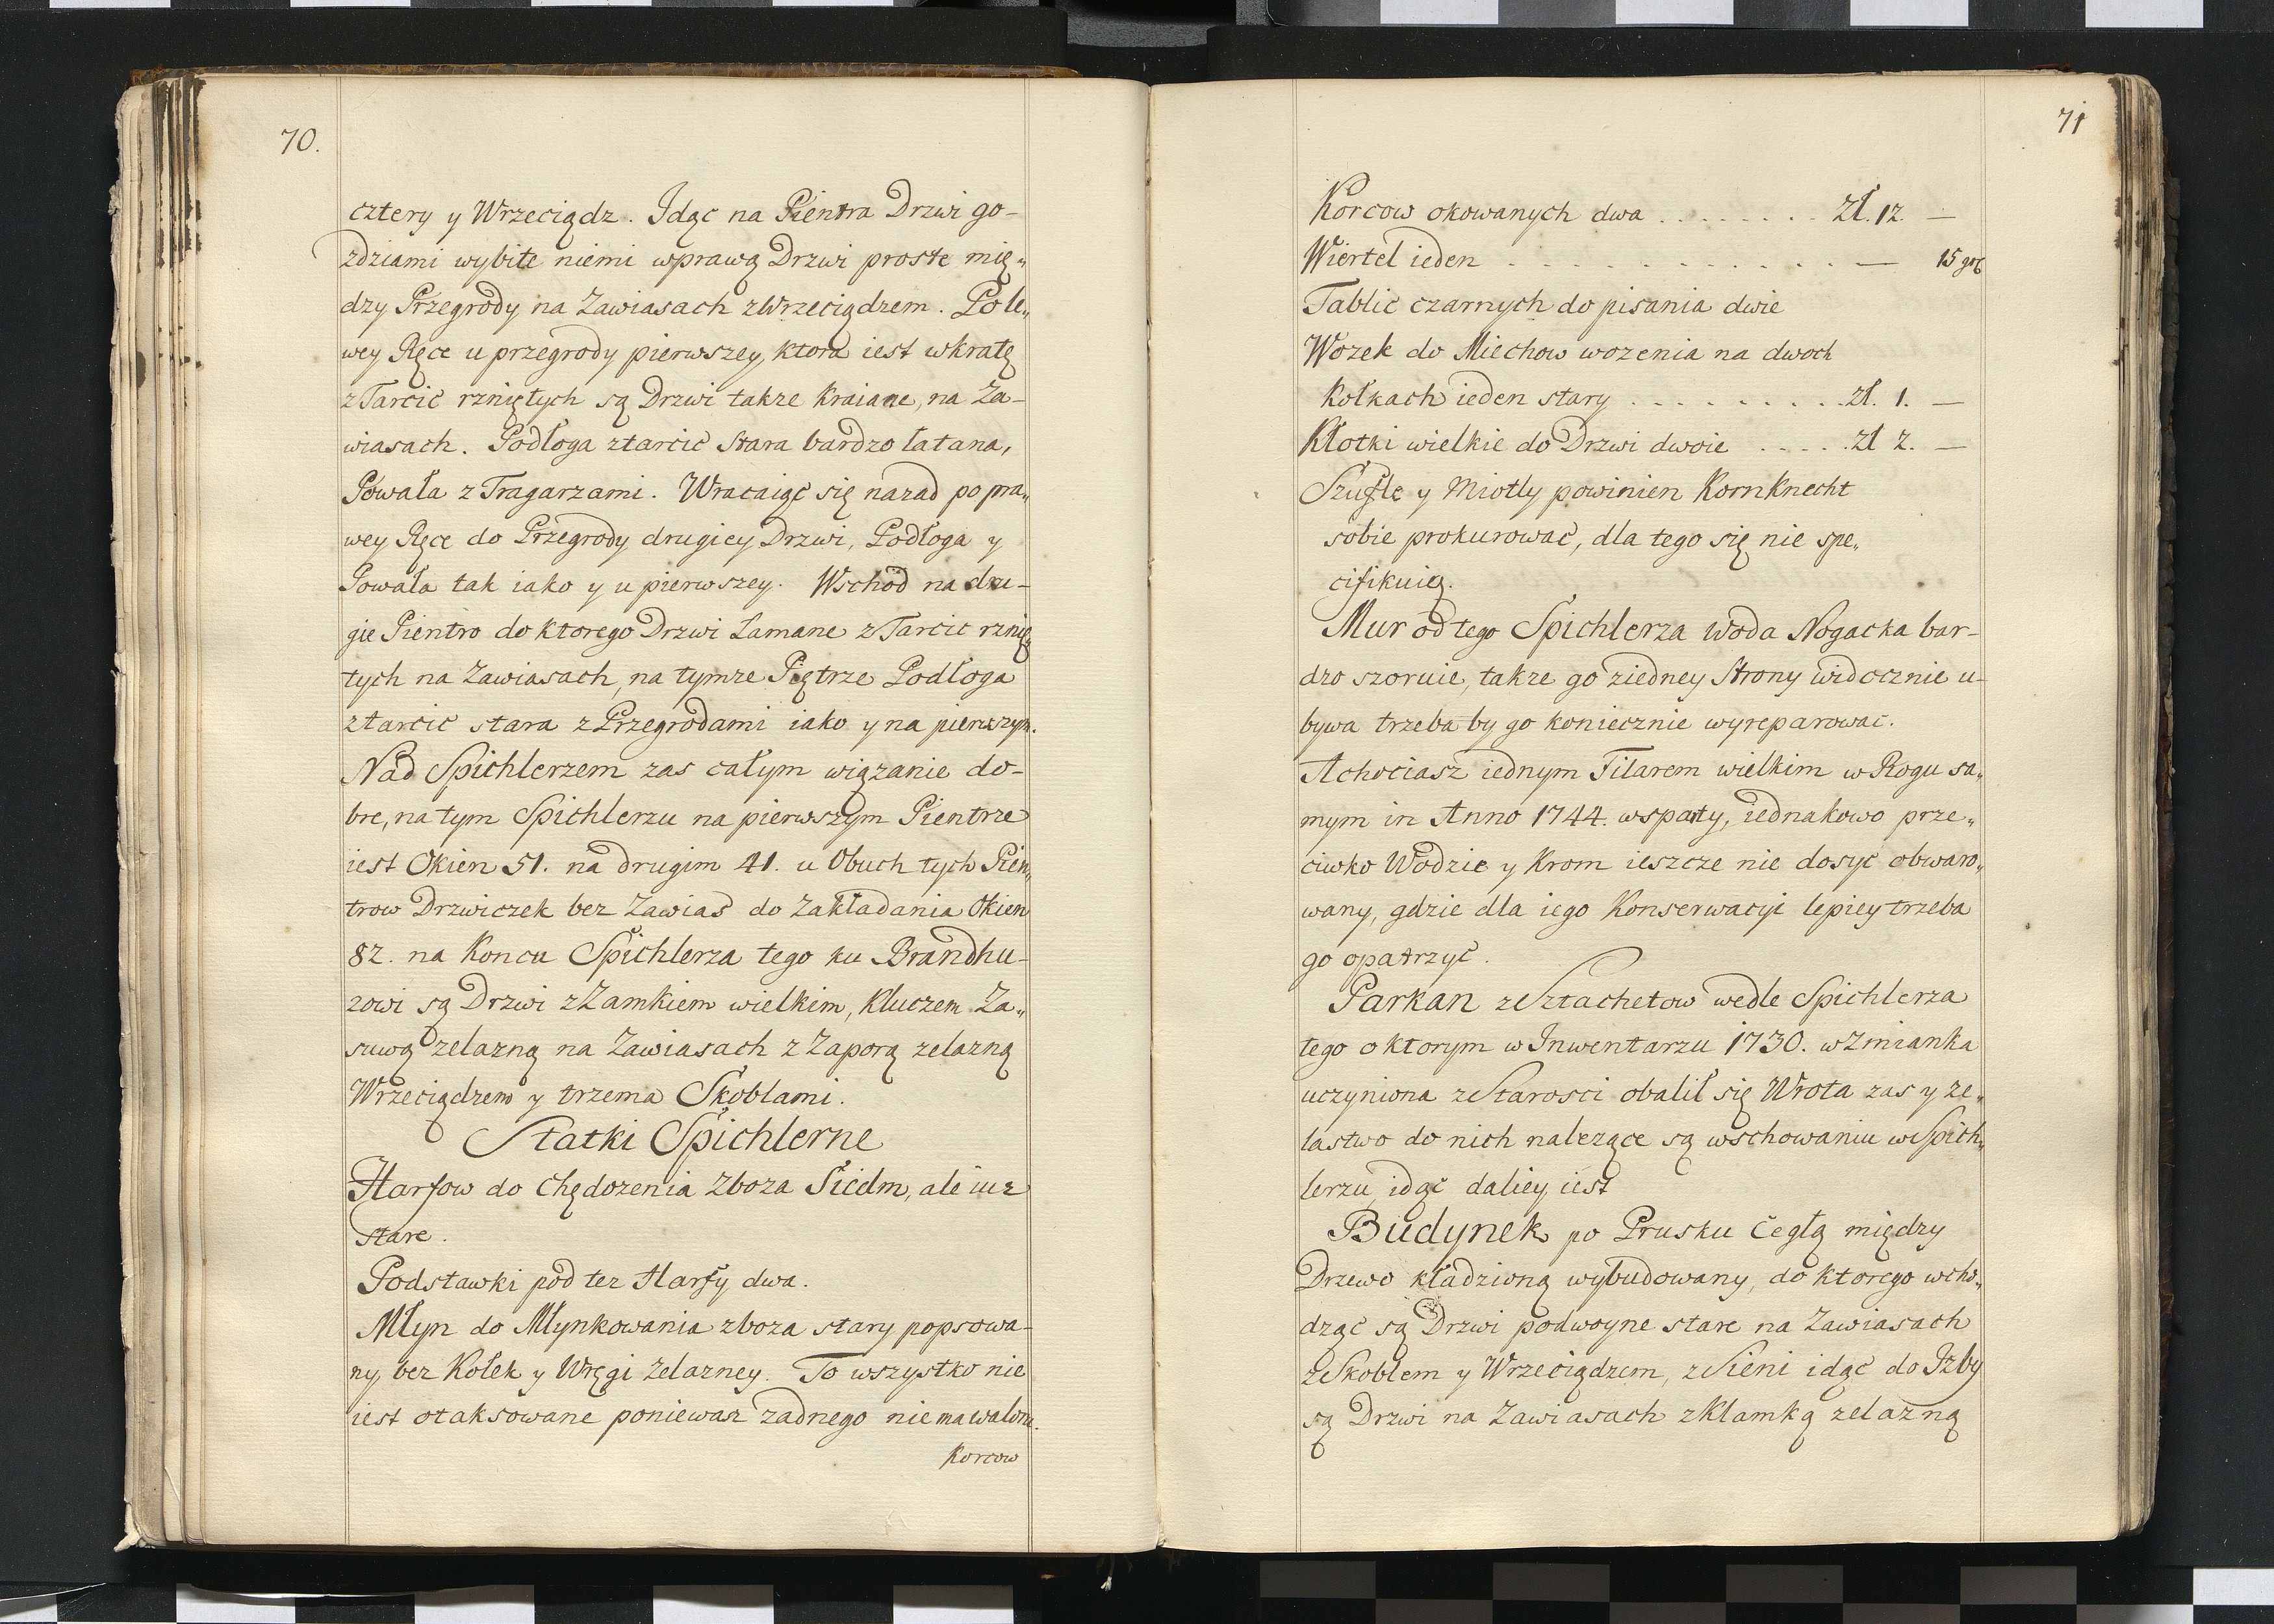 70.
cztery y Wrzeciądz. Idąc na Pientra Drzwi go-
zdziami wybite niemi wprawą Drzwi proste mię„
dzy Przegrody na Zawiasach z Wrzeciądzem. Po le„
wey Ręce u przegrody pierwszey, ktora iest w kratę
z Tarcic rzniętych są Drzwi takze Kraiane, na Za-
wiasach. Podłoga z tarcic stara bardzo łatana,
Powała z Tragarzami. Wracaiąc się nazad po pra„
wey Ręce do Przegrody drugiey Drzwi, Podłoga y
Powała tak iako y u pierwszey. Wschod na dru-
gie Pientro do ktorego Drzwi Łamane z Tarcic rznię„
tych na Zawiasach, na tymze Piętrze Podłoga
z tarcic stara z Przegrodami iako y na pierwszym.
Nad Spichlerzem zas całym wiązanie do-
bre, na tym Spichlerzu na pierwszym Pientrze
iest Okien 51. na drugim 41. u Obuch tych Pien„
trow Drzwiczek bez Zawias do Zakładania Okien
82. na Koncu Spichlerza tego ku Brandhu-
zowi są Drzwi z Zamkiem wielkim, Kluczem Za„
suwą zelazną na Zawiasach z Zaporą zelazną
Wrzeciądzem y trzema Skoblami.
Statki Spichlerne
Harfow do Chędozenia Zboza Siedm, ale iuz
stare.
Podstawki pod tez Harfy dwa.
Młyn do Młynkowania zboza stary popsowa-
ny, bez Kołek y Wręgi Zelazney. To wszystko nie
iest otaksowane poniewaz zadnego nie ma waloru.
Korcow
71
Korcow okowanych dwa . . . . . . . . Zł. 12. —
Wiertel ieden . . . . . . . . . . . . . — 15 gr
Tablic czarnych do pisania dwie
Wozek do Miechow wozenia na dwoch
Kołkach ieden stary . . . . . . . . . zł. 1. —
Kłotki wielkie do Drzwi dwoie . . . . . zł 2. —
Szufle y Miotły powinien Kornknecht
sobie prokurować, dla tego się nie spe„
cifikuią.
Mur od tego Spichlerza Woda Nogacka bar-
dzo szoruie, takze go z iedney Strony widocznie u-
bywa trzeba by go koniecznie wyreparować.
A chociasz iednym Filarem wielkim w Rogu sa„
mym in Anno 1744. wsparty, iednakowo prze„
ciwko Wodzie y Krom ieszcze nie dosyć obwaro„
wany, gdzie dla iego Konserwacyi lepiey trzeba
go opatrzyć.
Parkan z Sztachetow wedle Spichlerza
tego o ktorym w Inwentarzu 1730. wzmianka
uczyniona z Starosci obalił się Wrota zas y ze„
lastwo do nich nalezące są w schowaniu w Spich„
lerzu, idąc daliey iest
Budynek po Prusku Cegłą między
Drzewo kładzioną wybudowany, do ktorego wcho„
dząc są Drzwi podwoyne stare na Zawiasach
z Skoblem y Wrzeciądzem, z Sieni idąc do Izby
są Drzwi na Zawiasach z Klamką zelazną